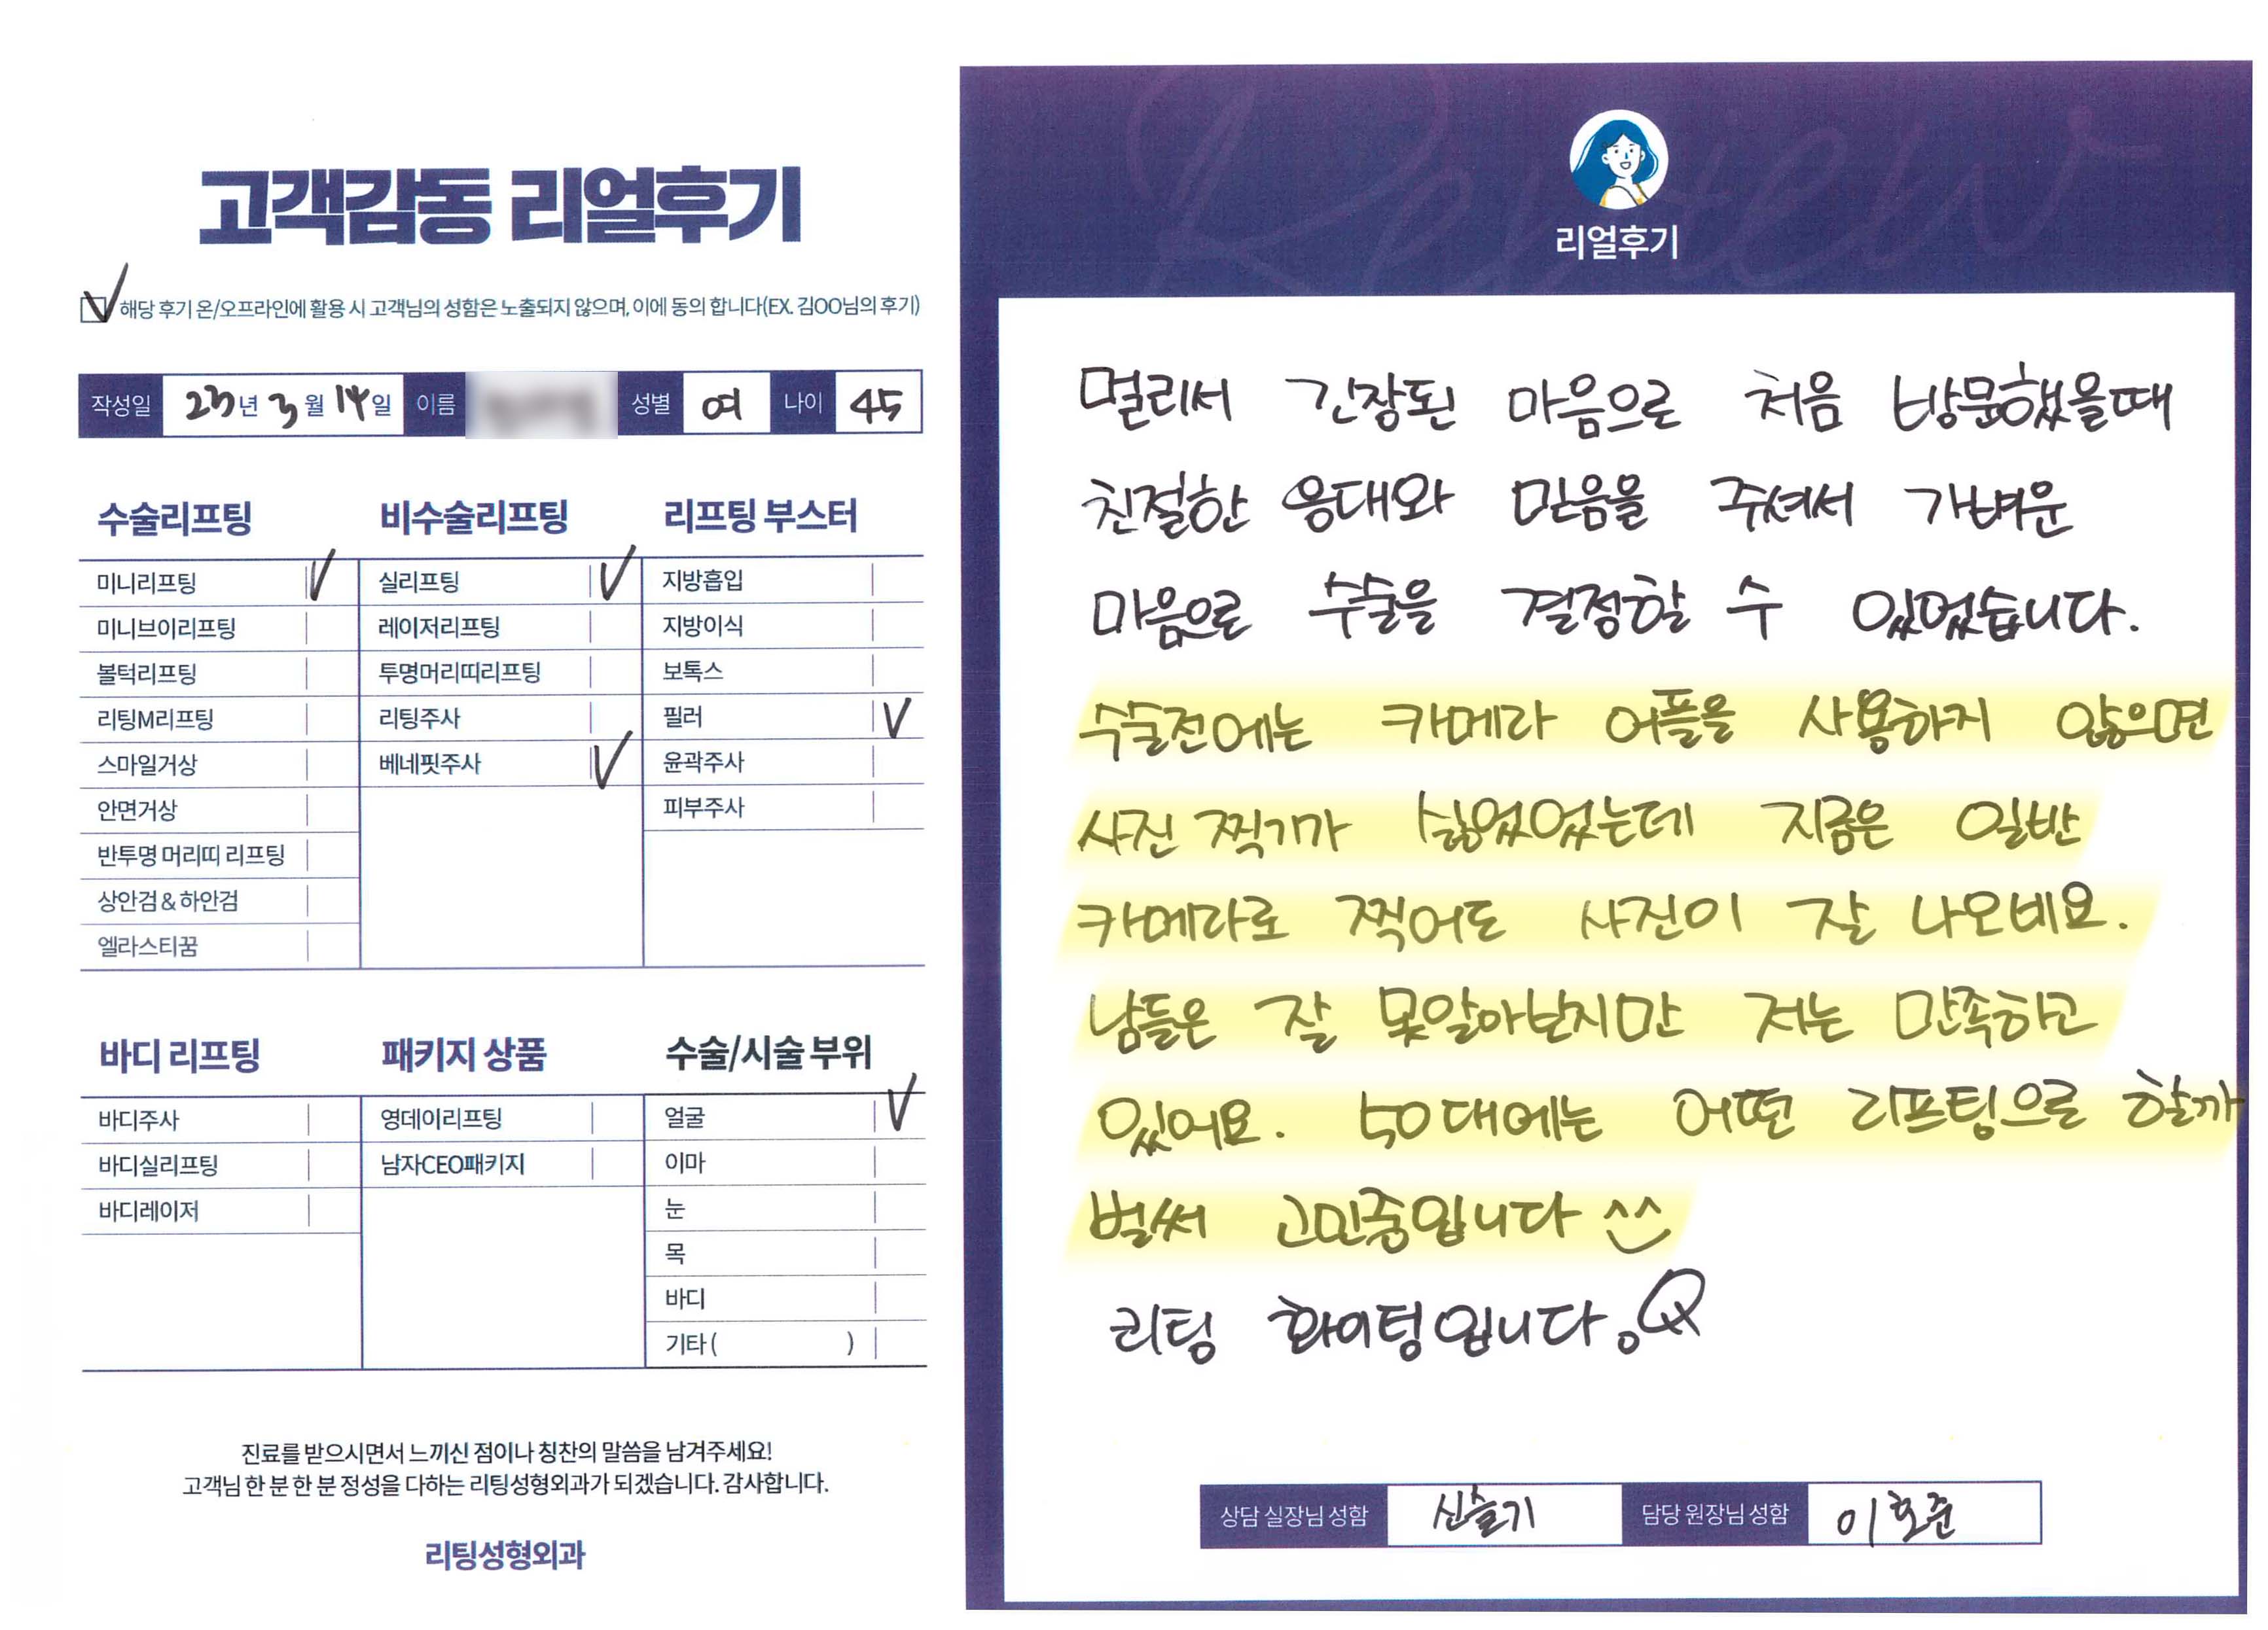 고객감동 리얼후기
해당 후기 온/오프라인에 활용 시 고객님의 성함은 노출되지 않으며, 이에 동의 합니다(EX. 김OO님의 후기)
작성일 23년 3월 14일 이름 성별 여 나이 45
수술리프팅 비수술리프팅 리프팅 부스터
미니리프팅 실리프팅 지방흡입
미니브이리프팅 레이저리프팅 지방이식
볼턱리프팅 투명머리띠리프팅 보톡스
리팅M리프팅 리팅주사 필러
스마일거상 베네핏주사 윤곽주사
안면거상 피부주사
반투명 머리띠 리프팅
상안검 & 하안검
엘라스티꿈
바디 리프팅 패키지 상품 수술/시술 부위
바디주사 영데이리프팅 얼굴
바디실리프팅 남자CEO패키지 이마
바디레이저 눈
목
바디
기타 ( )
진료를 받으시면서 느끼신 점이나 칭찬의 말씀을 남겨주세요!
고객님 한 분 한 분 정성을 다하는 리팅성형외과가 되겠습니다. 감사합니다.
리팅성형외과
Review
리얼후기
멀리서 긴장된 마음으로 처음 방문했을때
친절한 응대와 믿음을 주셔서 가벼운
마음으로 수술을 결정할 수 있었습니다.
수술전에는 카메라 어플을 사용하지 않으면
사진 찍기가 싫었었는데 지금은 일반
카메라로 찍어도 사진이 잘 나오네요.
남들은 잘 못알아보지만 저는 만족하고
있어요. 50대에는 어떤 리프팅으로 할까
벌써 고민중입니다 ^^
리팅 화이팅입니다.
상담 실장님 성함 신슬기 담당 원장님 성함 이호준